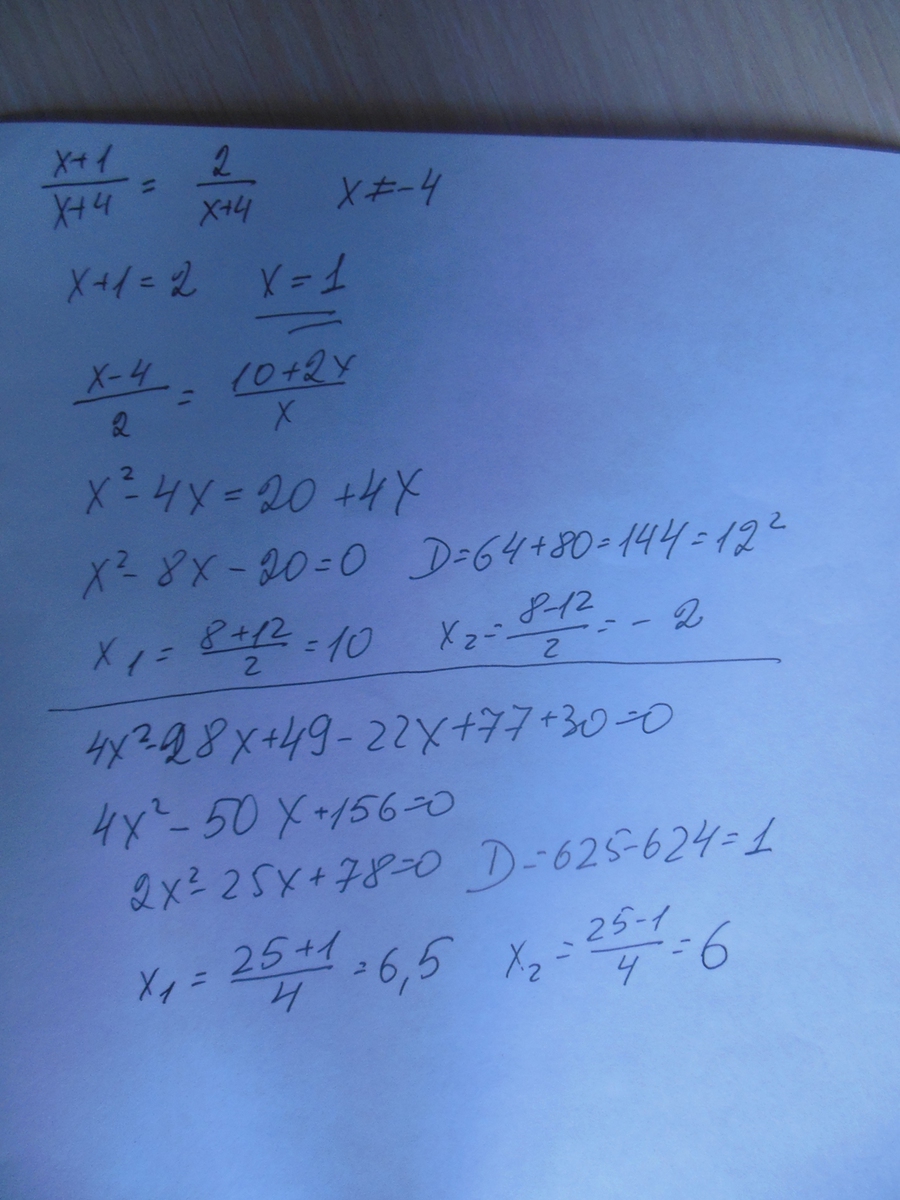 x+1/x+4 = 2/x+4 x≠-4
x+1=2 x=1
x-4/2 = 10+2x/x
x²-4x=20+4x
x²-8x-20=0 D=64+80=144=12²
x₁=8+12/2=10 x₂=8-12/2=-2
4x²-28x+49-22x+77+30=0
4x²-50x+156=0
2x²-25x+78=0 D=625-624=1
x₁=25+1/4=6,5 x₂=25-1/4=6